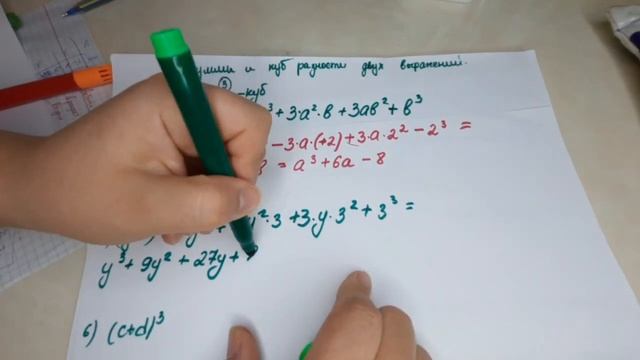 и куб разности двух выражений.
3 -куб
+ 3·a²·в + 3aв² + в³
- 3·a·(+2) + 3·a·2² - 2³ =
= a³ + 6a - 8
²·3 + 3·y·3² + 3³ =
y³ + 9y² + 27y +
б) (c+d)³